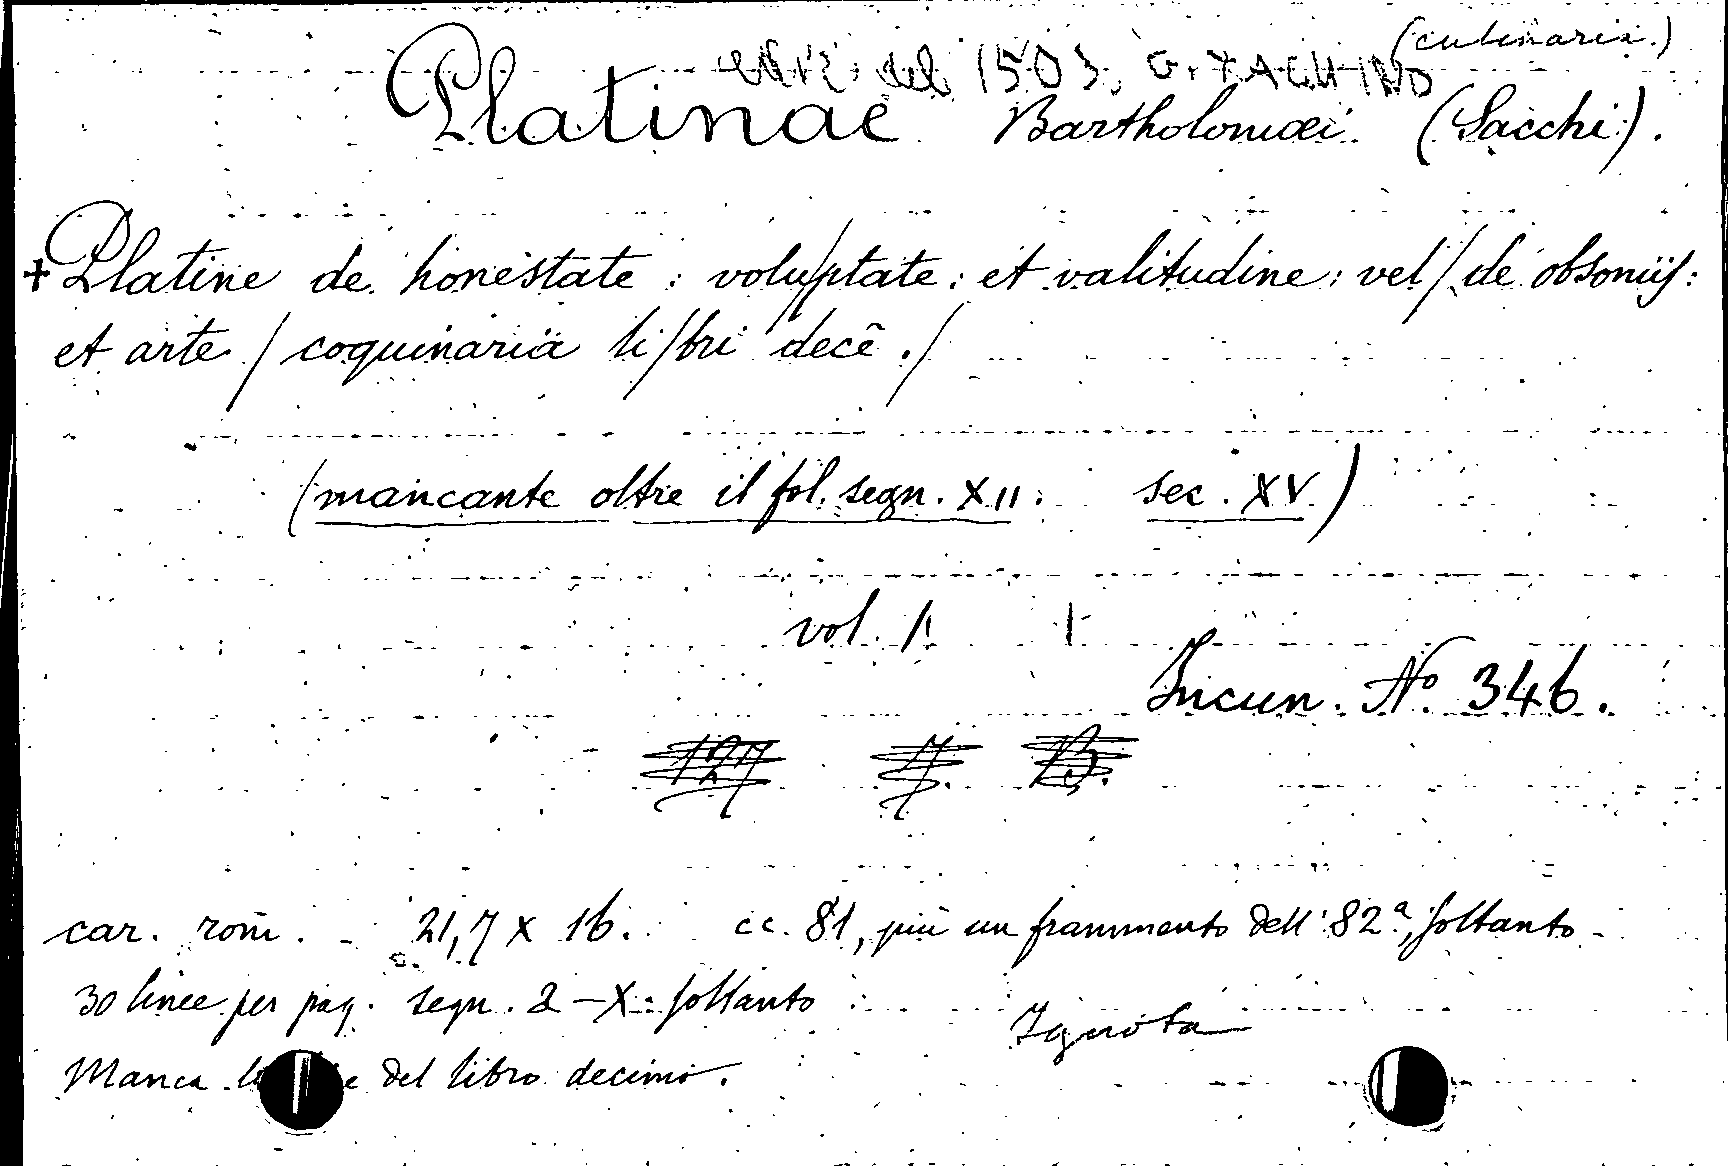 (culinaria.)
ediz. del 1503, G. TACUINO
Platinae Bartholomæi. (Sacchi).
+ Platine de honestate: volu/ptate: et valitudine: vel/ de obsoniis:
et arte / coquinaria li/bri decẽ./
(mancante oltre il fol. segn. XII. sec. XV)
vol. 1. 1
Incun. Nº 346.
127 7. B.
car. rom. - 21,7 x 16. cc. 81, più un frammento dell' 82ª, soltanto -
30 linee per pag. segn. 2 - X: soltanto
Ignota
Manca del libro decimo.